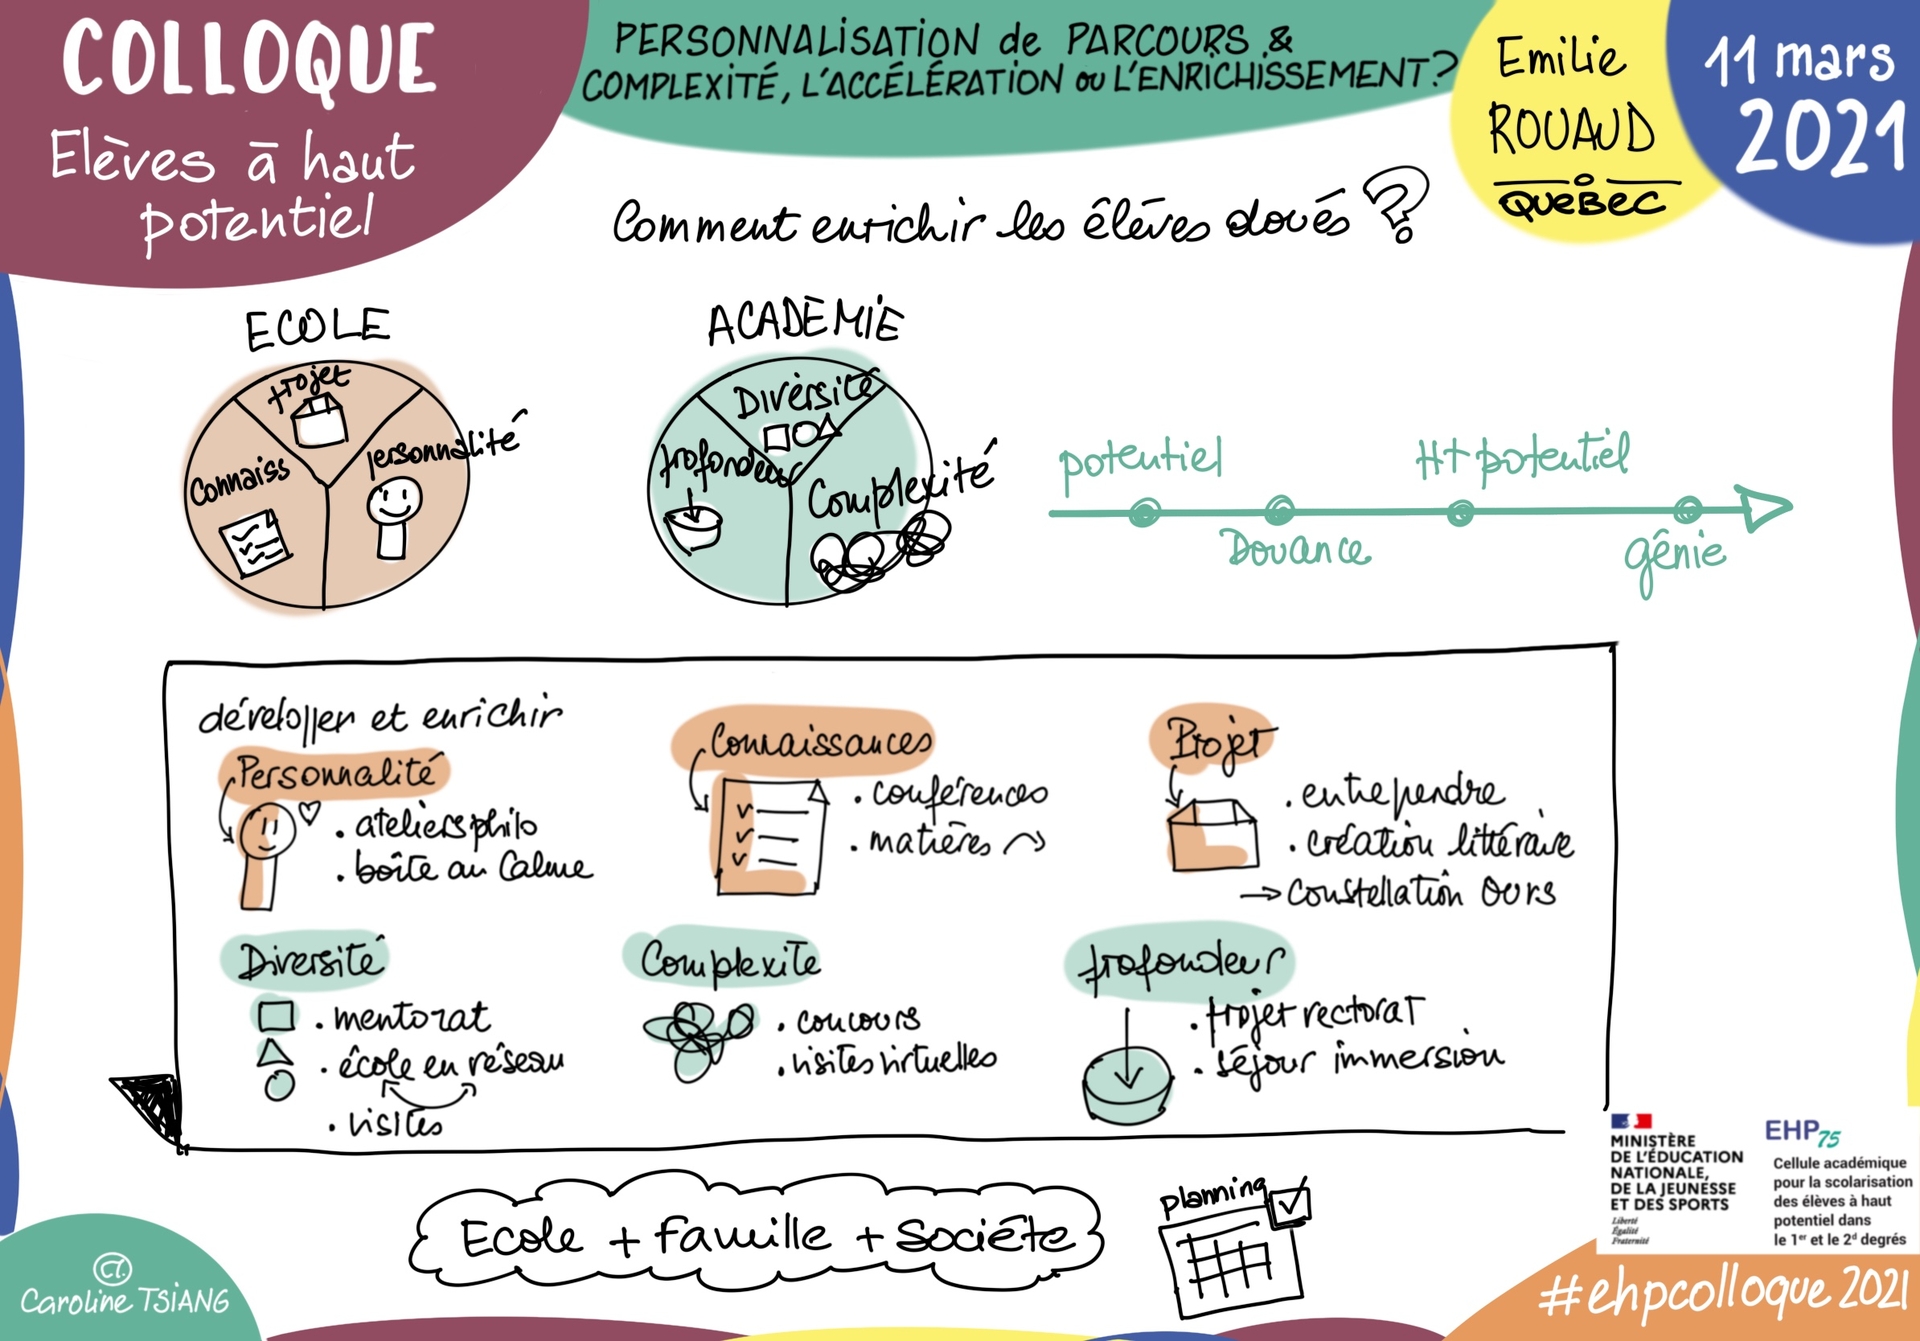 COLLOQUE
Elèves à haut
potentiel
PERSONNALISATION de PARCOURS &
COMPLEXITÉ, L'ACCÉLÉRATION ou L'ENRICHISSEMENT?
Emilie
ROUAUD
QUÉBEC
11 mars
2021
Comment enrichir les élèves doués ?
ECOLE
projet
Connaiss
personnalité
ACADÉMIE
Diversité
profondeur
Complexité
potentiel
Douance
Ht potentiel
génie
développer et enrichir
Personnalité
• ateliers philo
• boîte au Calme
Connaissances
• conférences
• matières
Projet
• entreprendre
• création littéraire
→ Constellation Ours
Diversité
• mentorat
• école en réseau
• visites
Complexité
• concours
• visites virtuelles
profondeur
• projet rectorat
• séjour immersion
Ecole + famille + Société
planning
MINISTÈRE
DE L'ÉDUCATION
NATIONALE,
DE LA JEUNESSE
ET DES SPORTS
Liberté
Égalité
Fraternité
EHP75
Cellule académique
pour la scolarisation
des élèves à haut
potentiel dans
le 1er et le 2d degrés
CT.
Caroline TSIANG
#ehpcolloque 2021